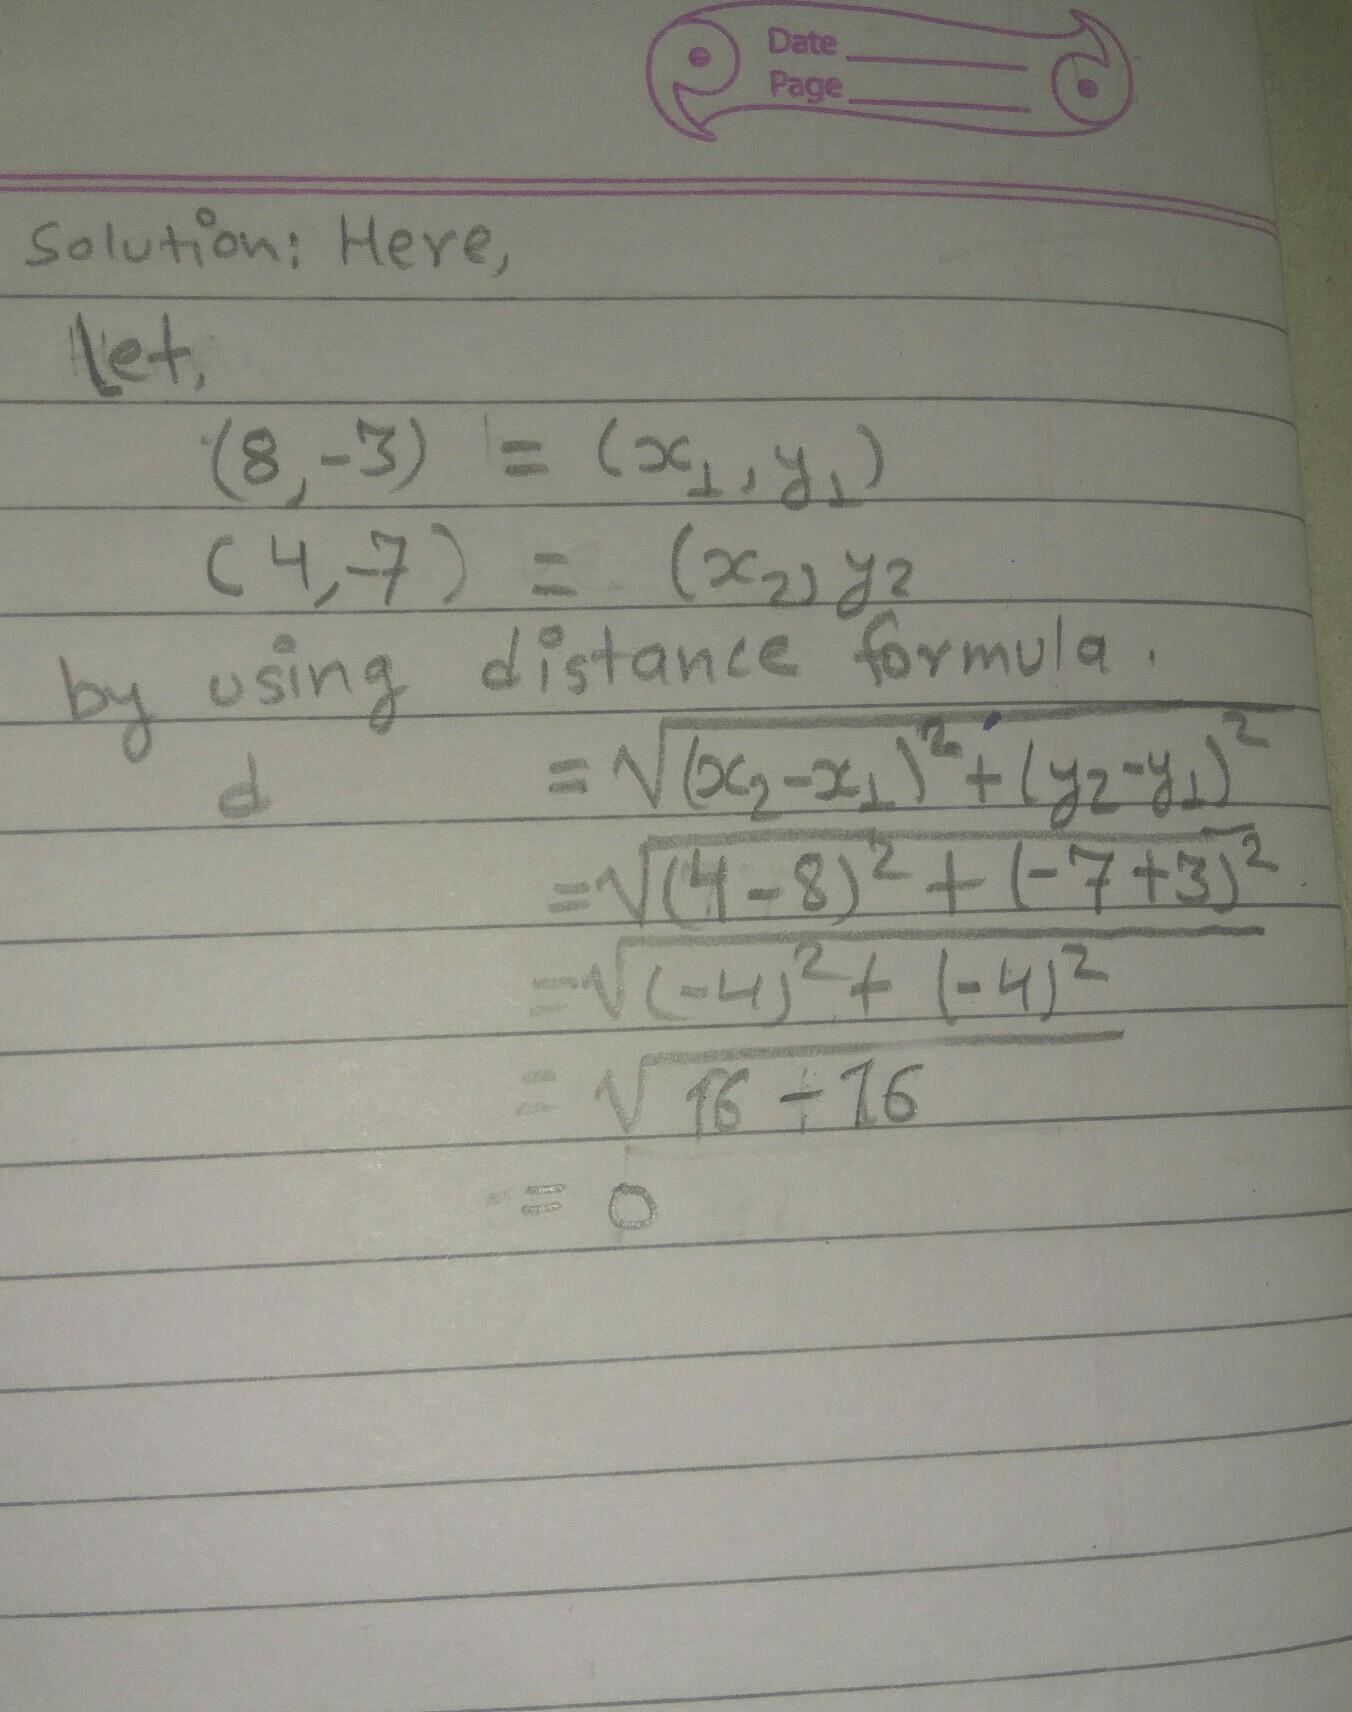 Date
Page
Solution: Here,
let,
(8,-3) = (x₁, y₁)
(4,-7) = (x₂, y₂
by using distance formula.
d = √(x₂-x₁)² + (y₂-y₁)²
= √(4-8)² + (-7+3)²
= √(-4)² + (-4)²
= √16 + 16
= 0